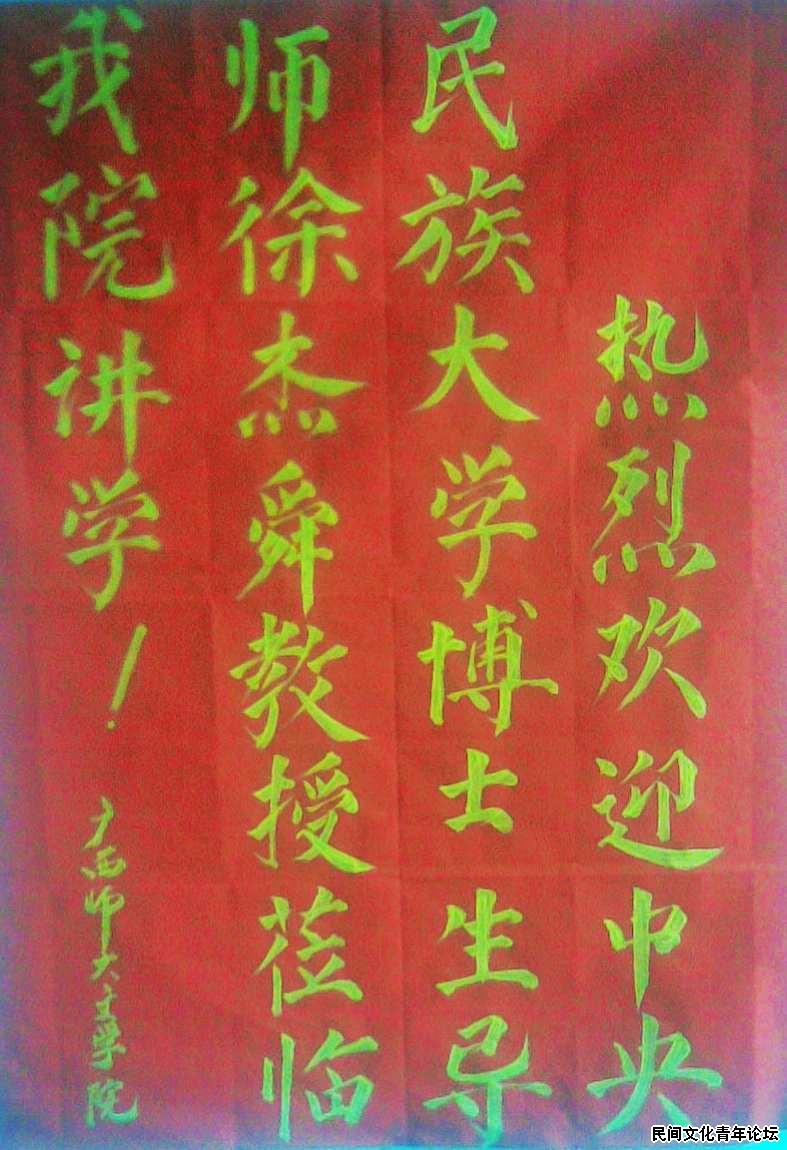 热烈欢迎中央
民族大学博士生导
师徐杰舜教授莅临
我院讲学！
广西师大文学院
民间文化青年论坛